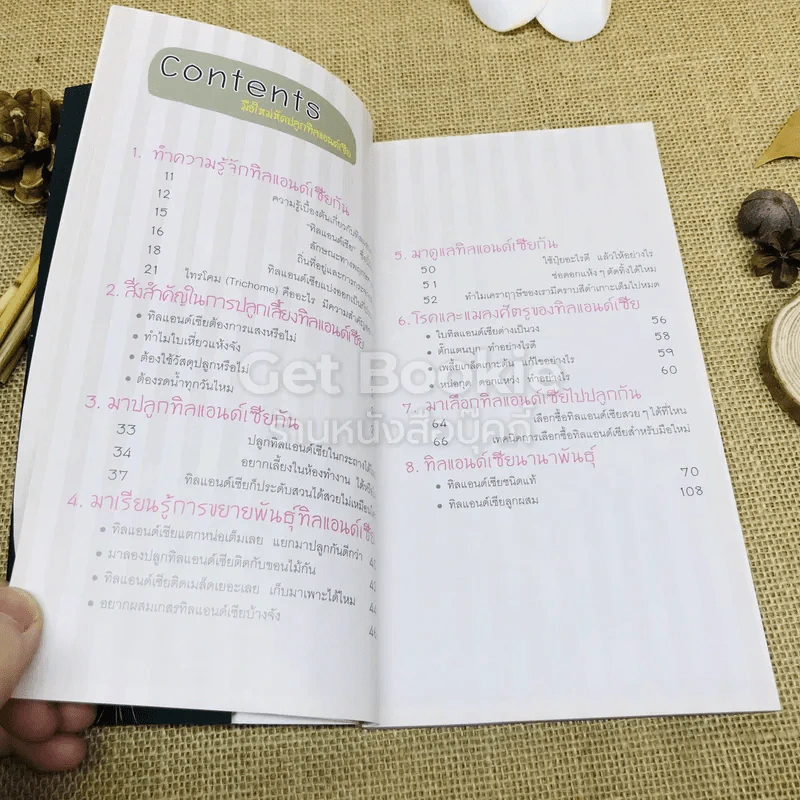 Contents
มือใหม่หัดปลูกทิลแอนด์เซีย
1. ทำความรู้จักทิลแอนด์เซียกัน
11 ความรู้เบื้องต้นเกี่ยวกับ
12 "ทิลแอนด์เซีย"
15 ลักษณะทาง
16 ถิ่นที่อยู่และการ
18 ทิลแอนด์เซียแบ่งออกเป็น
21 ไทรโคม (Trichome) คืออะไร มีความสำคัญ
2. สิ่งสำคัญในการปลูกเลี้ยงทิลแอนด์เซีย
• ทิลแอนด์เซียต้องการแสงหรือไม่
• ทำไมใบเหี่ยวแห้งจัง
• ต้องใช้วัสดุปลูกหรือไม่
• ต้องรดน้ำทุกวันไหม
3. มาปลูกทิลแอนด์เซียกัน
33 ปลูกทิลแอนด์เซียในกระถาง
34 อยากเลี้ยงในห้องทำงาน
37 ทิลแอนด์เซียก็ประดับสวนได้สวยไม่เหมือน
4. มาเรียนรู้การขยายพันธุ์ทิลแอนด์เซีย
• ทิลแอนด์เซียแตกหน่อเต็มเลย แยกมาปลูกกันดีกว่า
• มาลองปลูกทิลแอนด์เซียติดกับขอนไม้กัน
• ทิลแอนด์เซียติดเมล็ดเยอะเลย เก็บมาเพาะได้ไหม
• อยากผสมเกสรทิลแอนด์เซียบ้างจัง
5. มาดูแลทิลแอนด์เซียกัน
50 ใช้ปุ๋ยอะไรดี แล้วให้อย่างไร
51 ช่อดอกแห้ง ๆ ตัดทิ้งได้ไหม
52 ทำไมเคราฤาษีของเรามีคราบสีดำเกาะเต็มไปหมด
6. โรคและแมลงศัตรูของทิลแอนด์เซีย
• ใบทิลแอนด์เซียด่างเป็นวง 56
• ตั๊กแตนบุก ทำอย่างไรดี 58
• เพลี้ยเกล็ดเกาะต้น แก้ไขอย่างไร 59
• หน่อกุด ดอกแหว่ง ทำอย่างไร 60
7. มาเลือกทิลแอนด์เซียไปปลูกกัน
64 เลือกซื้อทิลแอนด์เซียสวย ๆ ได้ที่ไหน
66 เทคนิคการเลือกซื้อทิลแอนด์เซียสำหรับมือใหม่
8. ทิลแอนด์เซียนานาพันธุ์
• ทิลแอนด์เซียชนิดแท้ 70
• ทิลแอนด์เซียลูกผสม 108
Get Bookie
ร้านหนังสือบุ๊คกี้